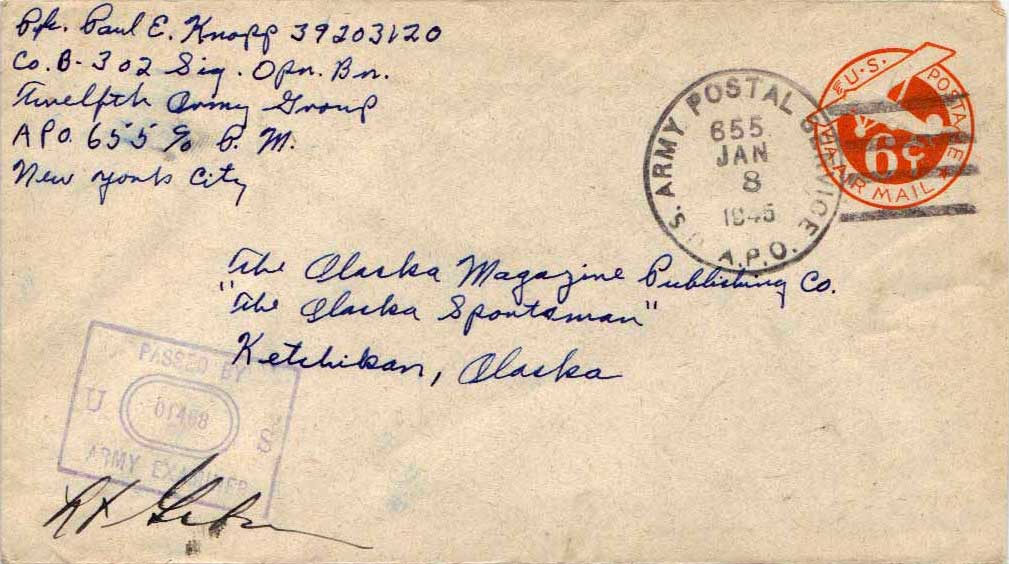 Pfc. Paul E. Knopp 39203120
Co. B - 302 Sig. Opn. Bn.
Twelfth Army Group
APO. 655 c/o P. M.
New York City
U.S. ARMY POSTAL SERVICE
655
JAN
8
1945
A.P.O.
U.S. POSTAGE
6¢
VIA AIR MAIL
The Alaska Magazine Publishing Co.
"The Alaska Sportsman"
Ketchikan, Alaska
PASSED BY
U S
ARMY EXAMINER